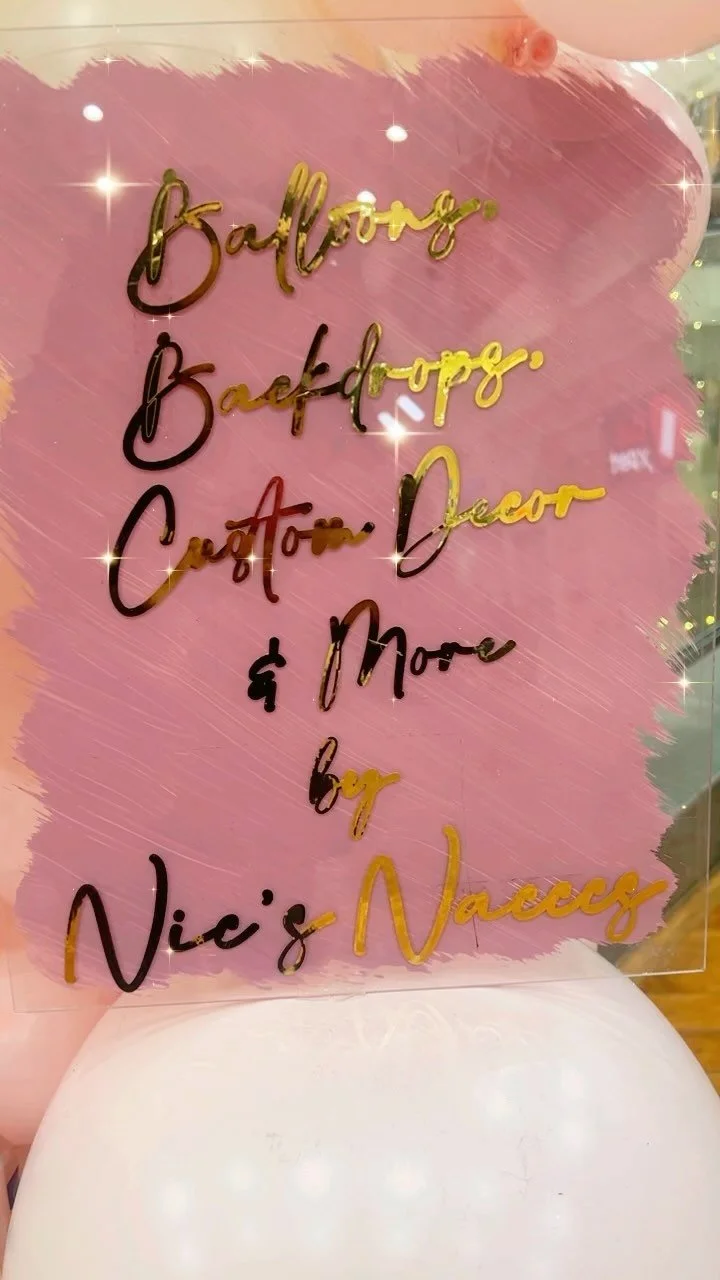 Balloons.
Backdrops.
Custom Decor
& More
by
Nic's Naeees